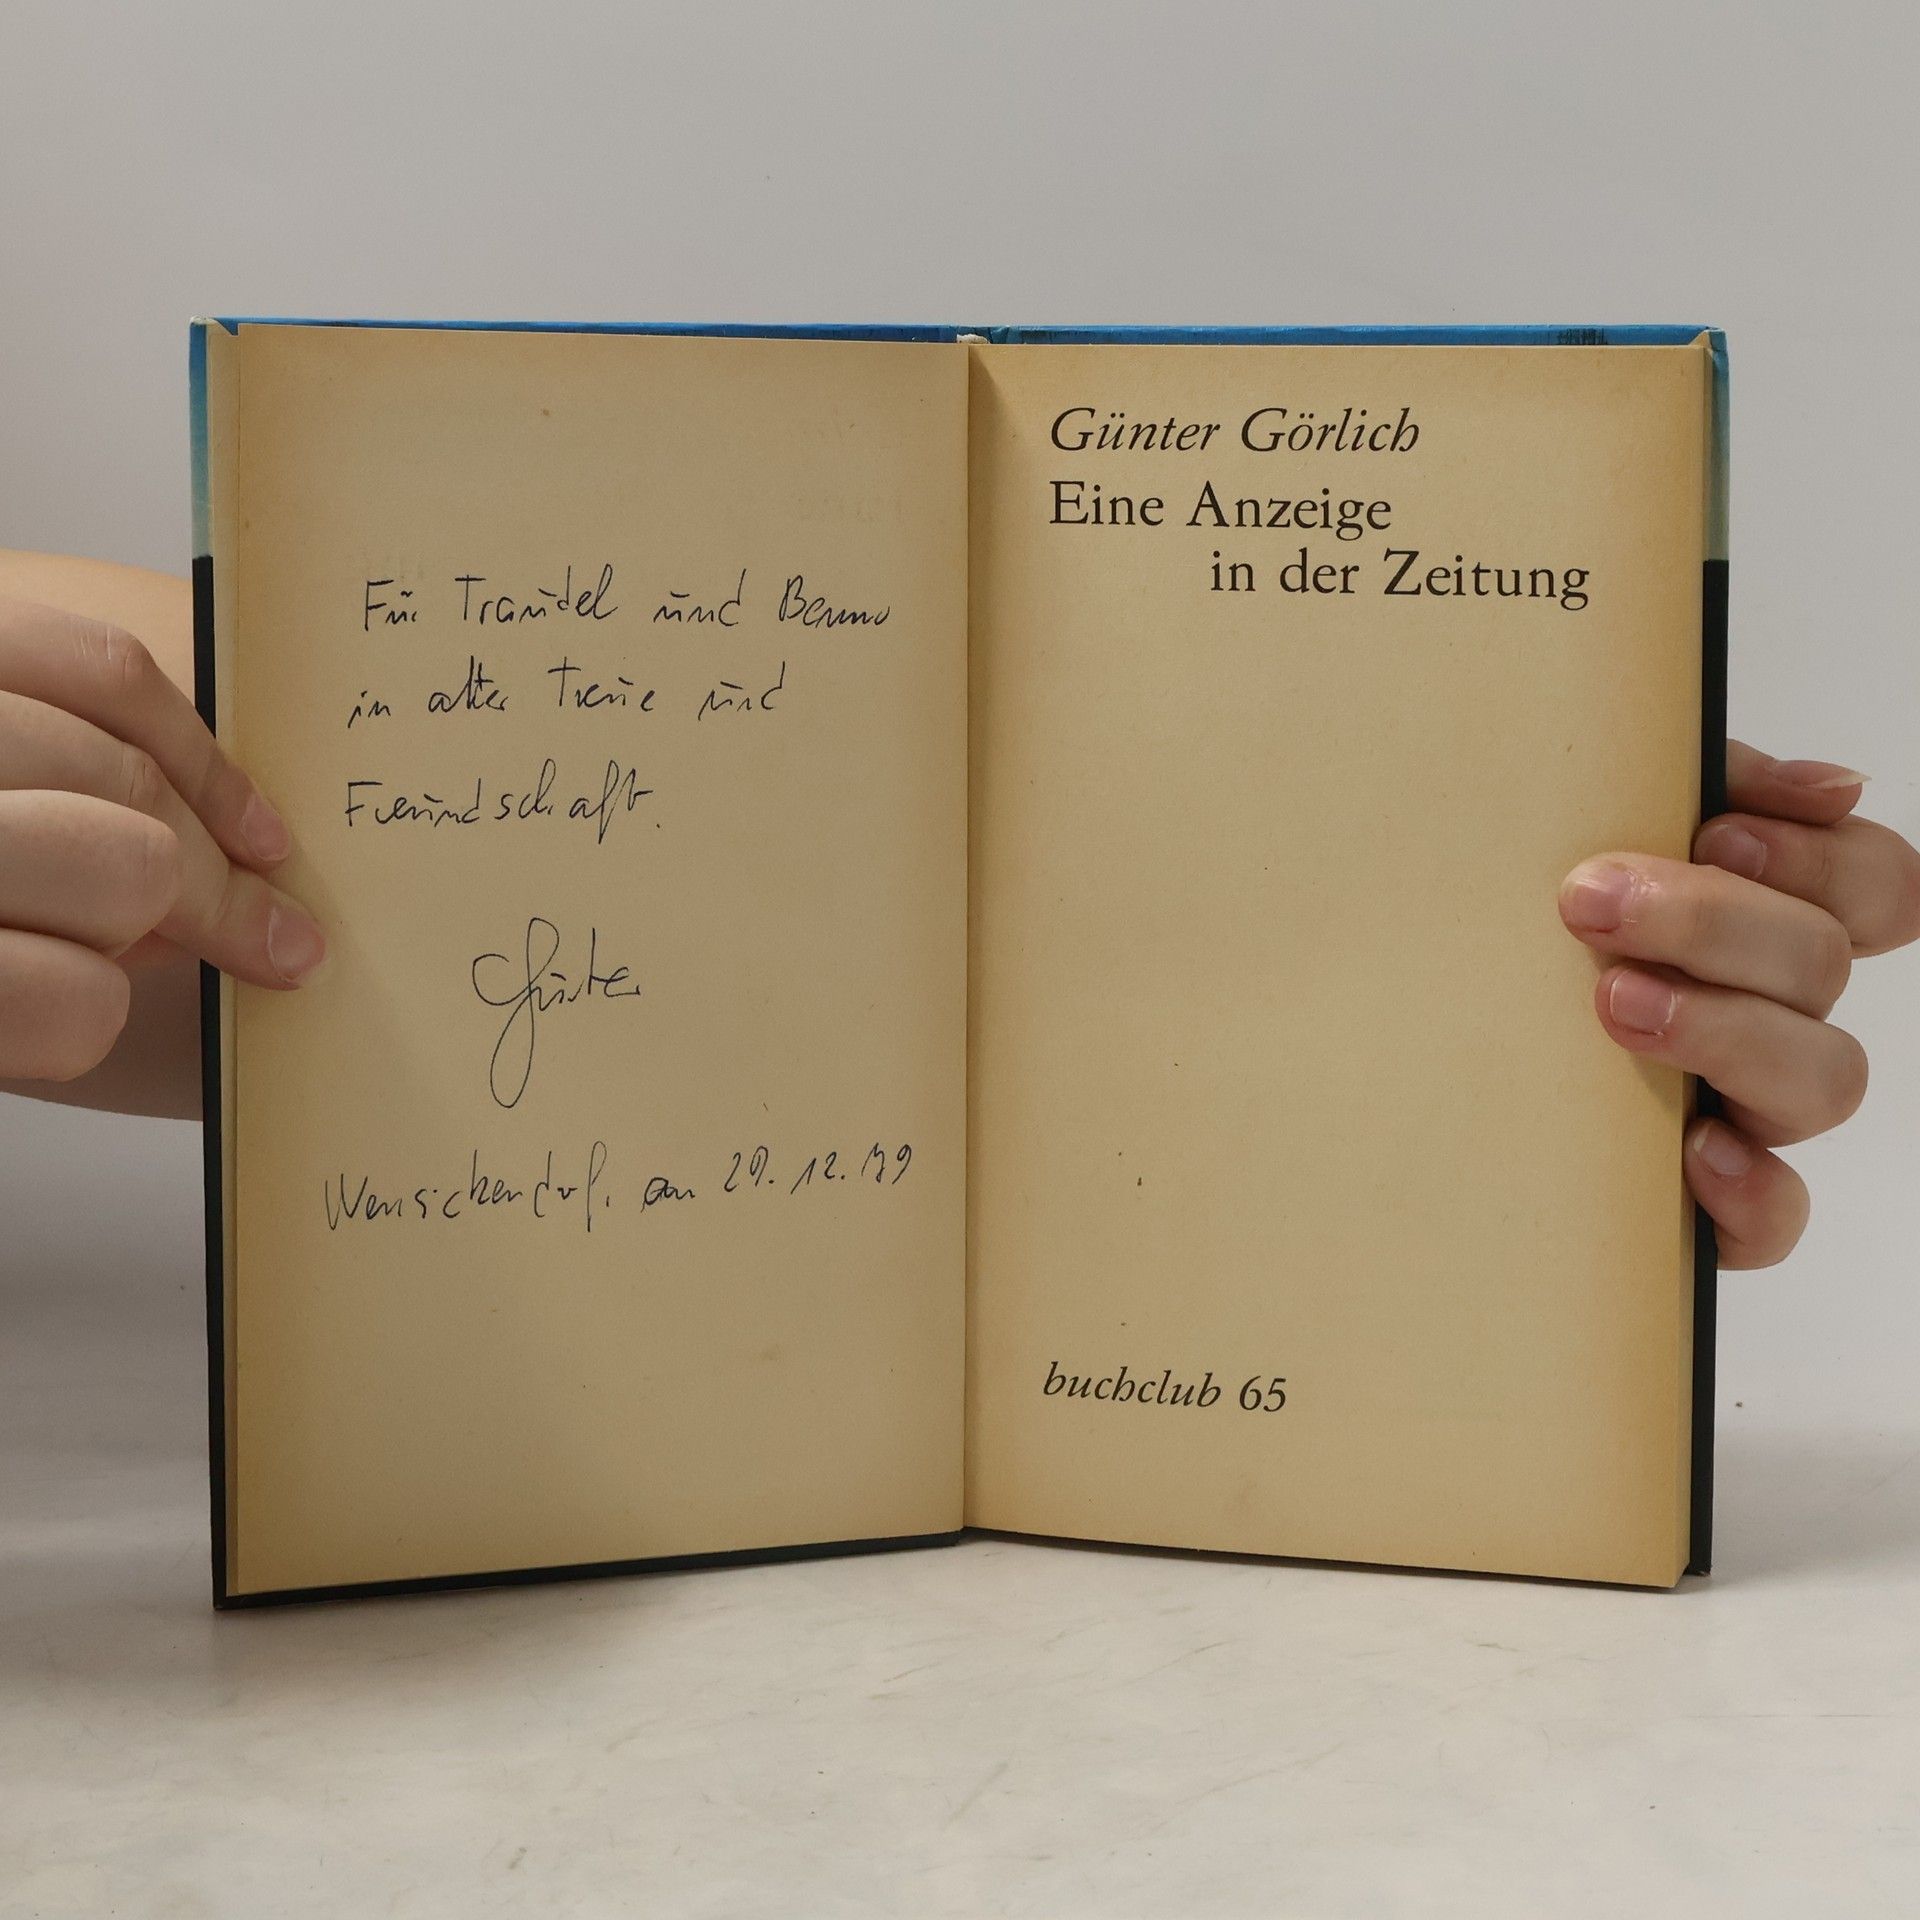 Für Traudel und Benno
in alter Treue und
Freundschaft.
Günter
Wensickendorf, am 29. 12. 79
Günter Görlich
Eine Anzeige
in der Zeitung
buchclub 65